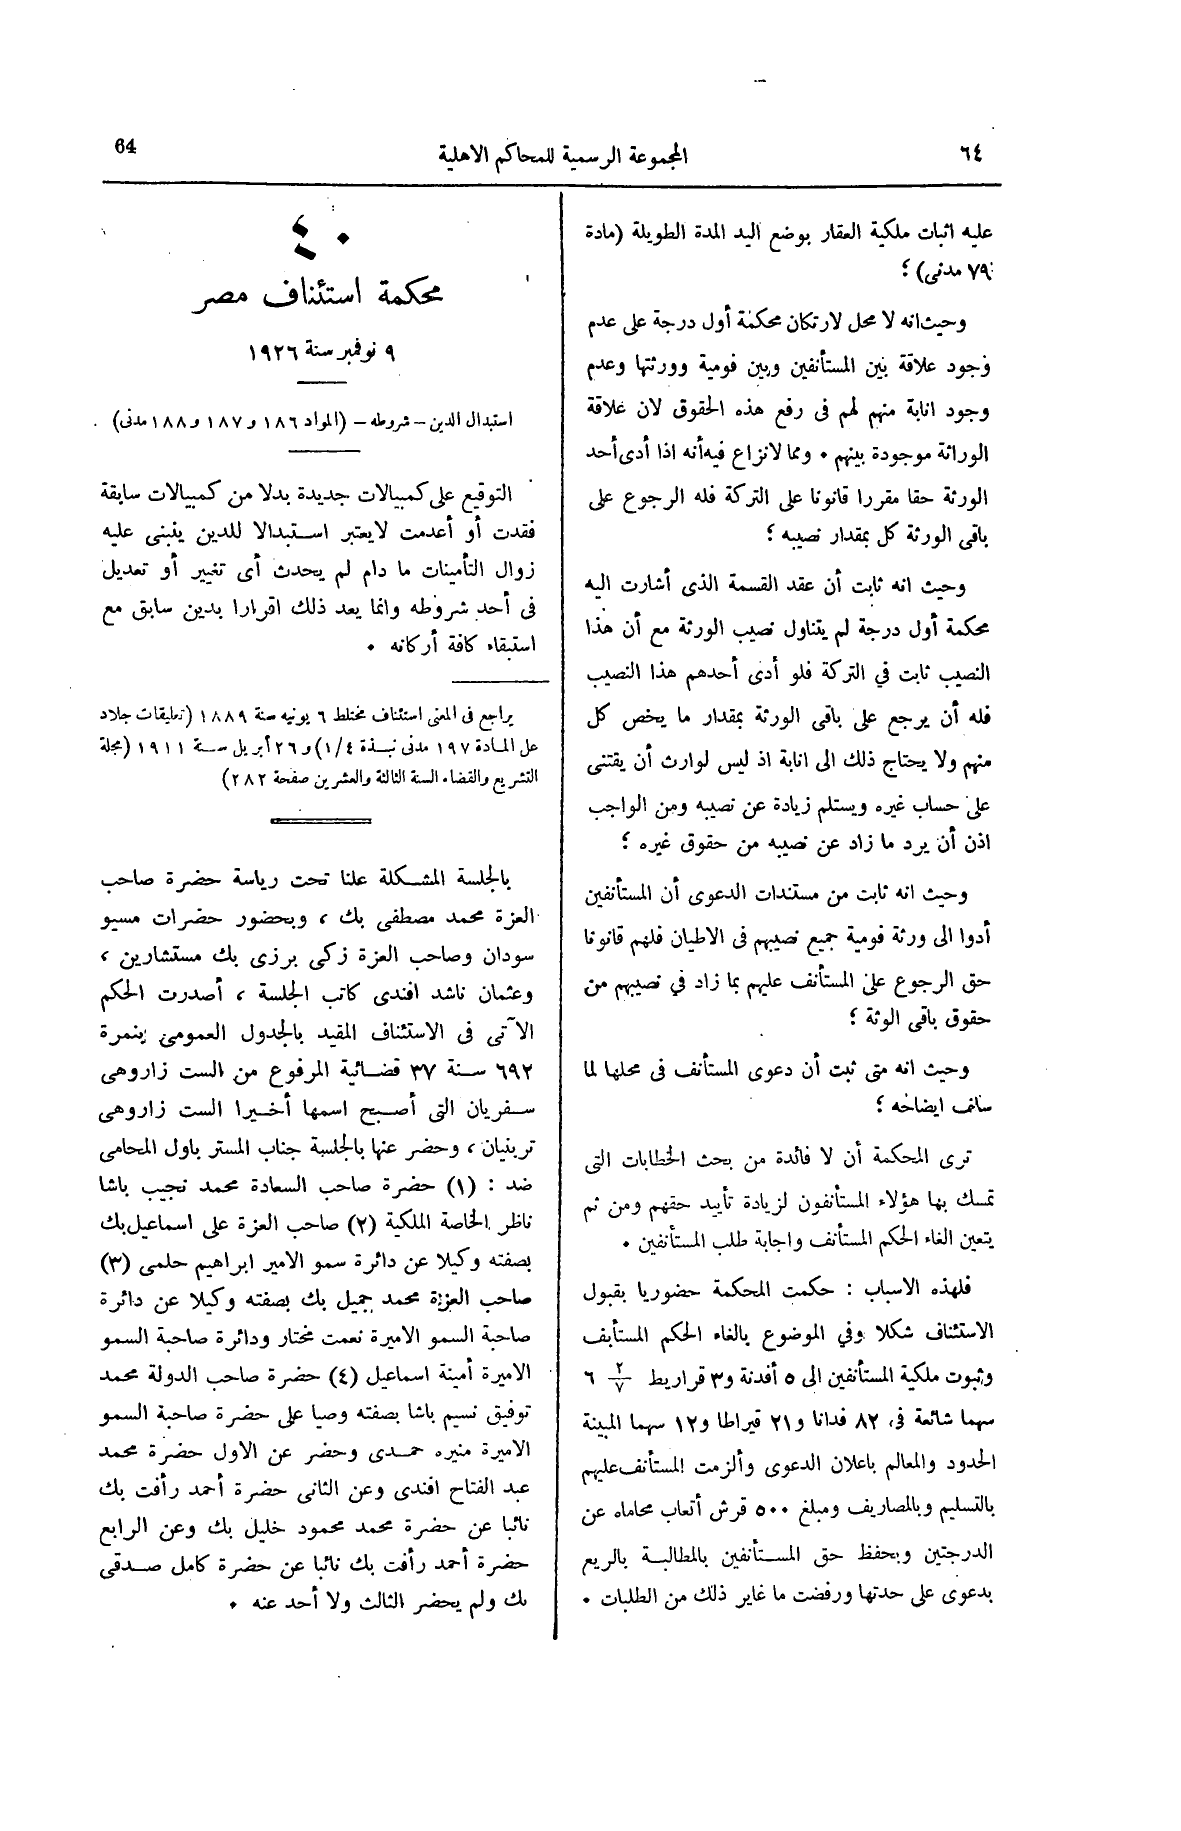 ٦٤
المجموعة الرسمية للمحاكم الاهلية
64
عليه اثبات ملكية العقار بوضع اليد المدة الطويلة (مادة
٧٩ مدنى) ؛
وحيث انه لا محل لارتكان محكمة أول درجة على عدم
وجود علاقة بين المستأنفين وبين فومية وورثتها وعدم
وجود انابة منهم لهم فى رفع هذه الحقوق لان علاقة
الوراثة موجودة بينهم ٠ ومما لانزاع فيه أنه اذا أدى أحد
الورثة حقا مقررا قانونا على التركة فله الرجوع على
باقى الورثة كل بمقدار نصيبه ؛
وحيث انه ثابت أن عقد القسمة الذى أشارت اليه
محكمة أول درجة لم يتناول نصيب الورثة مع أن هذا
النصيب ثابت في التركة فلو أدى أحدهم هذا النصيب
فله أن يرجع على باقى الورثة بمقدار ما يخص كل
منهم ولا يحتاج ذلك الى انابة اذ ليس لوارث أن يقتنى
على حساب غيره ويستلم زيادة عن نصيبه ومن الواجب
اذن أن يرد ما زاد عن نصيبه من حقوق غيره ؛
وحيث انه ثابت من مستندات الدعوى أن المستأنفين
أدوا الى ورثة فومية جميع نصيبهم فى الاطيان فلهم قانونا
حق الرجوع على المستأنف عليهم بما زاد في نصيبهم من
حقوق باقى الوثة ؛
وحيث انه متى ثبت أن دعوى المستأنف فى محلها لما
سلف ايضاحه ؛
ترى المحكمة أن لا فائدة من بحث الخطابات التى
تمسك بها هؤلاء المستأنفون لزيادة تأييد حقهم ومن ثم
يتعين الغاء الحكم المستأنف واجابة طلب المستأنفين ٠
فلهذه الاسباب : حكمت المحكمة حضوريا بقبول
الاستئناف شكلا وفي الموضوع بالغاء الحكم المستأنف
وثبوت ملكية المستأنفين الى ٥ أفدنة و٣ قراريط ٢/٧ ٦
سهما شائعة فى ٨٢ فدانا و٢١ قيراطا و١٢ سهما المبينة
الحدود والمعالم باعلان الدعوى وألزمت المستأنف عليهم
بالتسليم وبالمصاريف ومبلغ ٥٠٠ قرش أتعاب محاماه عن
الدرجتين وبحفظ حق المستأنفين بالمطالبة بالريع
بدعوى على حدتها ورفضت ما غاير ذلك من الطلبات ٠
٤٠
محكمة استئناف مصر
٩ نوفمبر سنة ١٩٢٦
استبدال الدين – شروطه – (المواد ١٨٦ و ١٨٧ و ١٨٨ مدنى)
التوقيع على كمبيالات جديدة بدلا من كمبيالات سابقة
فقدت أو أعدمت لايعتبر استبدالا للدين ينبنى عليه
زوال التأمينات ما دام لم يحدث أى تغيير أو تعديل
فى أحد شروطه وانما يعد ذلك اقرارا بدين سابق مع
استبقاء كافة أركانه ٠
يراجع فى المعنى استئناف مختلط ٦ يونيه سنة ١٨٨٩ (تعليقات جلاد
على المادة ١٩٧ مدنى نبذة ١/٤) و ٢٦ أبريل سنة ١٩١١ (مجلة
التشريع والقضاء السنة الثالثة والعشرين صفحة ٢٨٢)
بالجلسة المشكلة علنا تحت رياسة حضرة صاحب
العزة محمد مصطفى بك ، وبحضور حضرات مسيو
سودان وصاحب العزة زكى برزى بك مستشارين ،
وعثمان ناشد افندى كاتب الجلسة ، أصدرت الحكم
الآتى فى الاستئناف المقيد بالجدول العمومى بنمرة
٦٩٢ سنة ٣٧ قضائية المرفوع من الست زاروهى
سفريان التى أصبح اسمها أخيرا الست زاروهى
ترينيان ، وحضر عنها بالجلسة جناب المستر باول المحامى
ضد : (١) حضرة صاحب السعادة محمد نجيب باشا
ناظر الخاصة الملكية (٢) صاحب العزة على اسماعيل بك
بصفته وكيلا عن دائرة سمو الامير ابراهيم حلمى (٣)
صاحب العزة محمد جميل بك بصفته وكيلا عن دائرة
صاحبة السمو الاميرة نعمت مختار ودائرة صاحبة السمو
الاميرة أمينة اسماعيل (٤) حضرة صاحب الدولة محمد
توفيق نسيم باشا بصفته وصيا على حضرة صاحبة السمو
الاميرة منيره حمدى وحضر عن الاول حضرة محمد
عبد الفتاح افندى وعن الثانى حضرة أحمد رأفت بك
نائبا عن حضرة محمد محمود خليل بك وعن الرابع
حضرة أحمد رأفت بك نائبا عن حضرة كامل صدقى
بك ولم يحضر الثالث ولا أحد عنه ٠